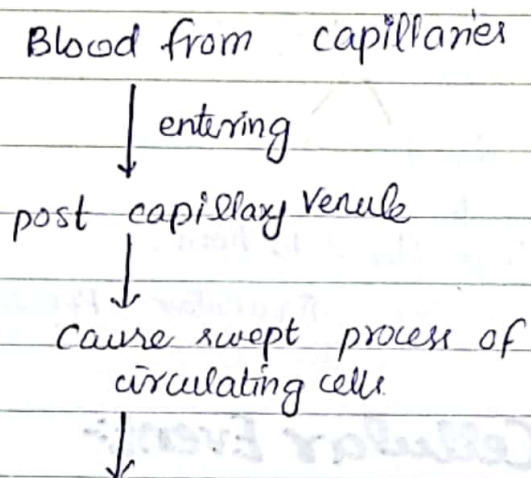 Blood from capillaries
entering
post capillary venule
Cause swept process of
circulating cells
Cellular Event:-